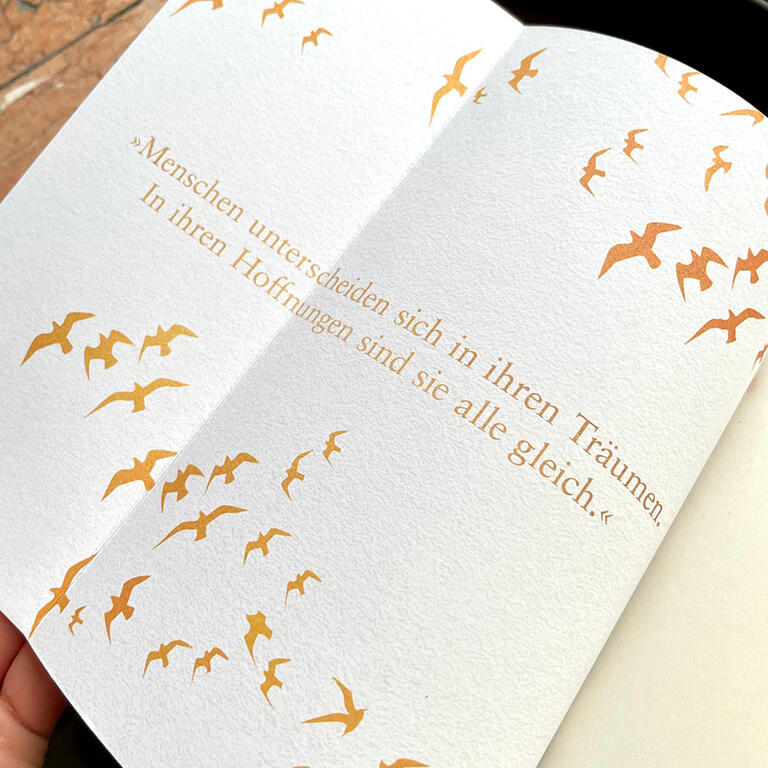 »Menschen unterscheiden sich in ihren Träumen.
In ihren Hoffnungen sind sie alle gleich.«